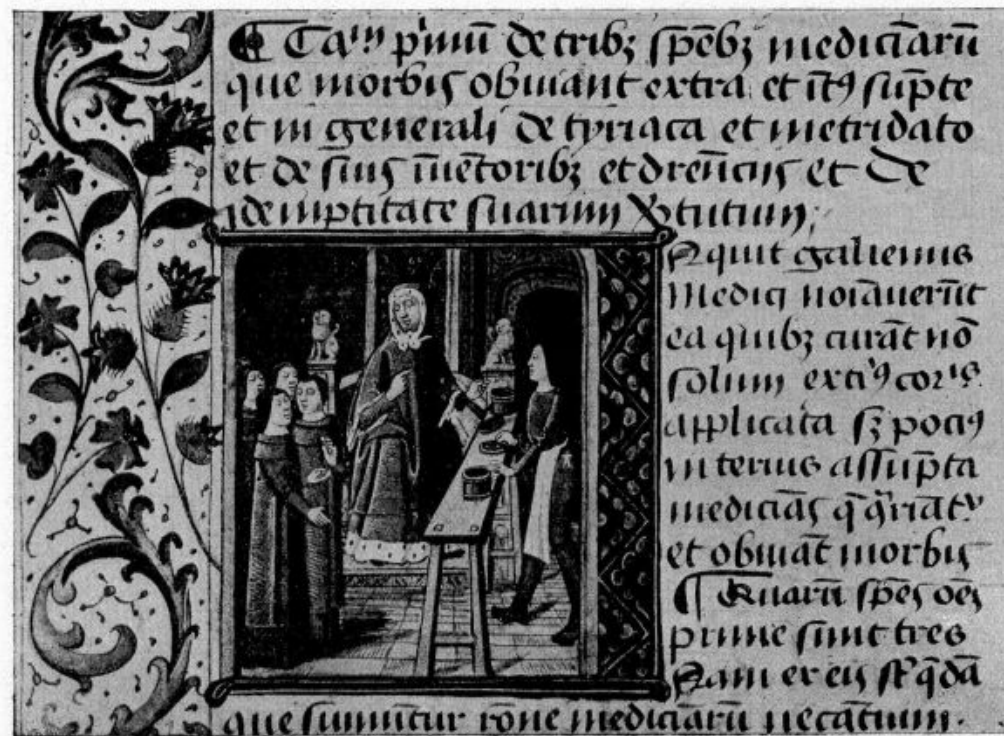 Ca^m p'imū de tribꝫ sp̄ebꝫ medicīarū
que morbis obuiant extra et ītꝯ sūpte
et in generali de tyriaca et metridato
et de suis īuētoribꝫ et drēnciis et de
ydemptitate suarum v̓tutum
Nquit galienus
Medici noīauerūt
ea quibꝫ curāt nō
solum extiꝯ corīs
applicata sꝫ pociꝯ
interius assūpta
medicīas
et obuiāt morbis
¶ Quarū sp̄es oēs
prime sunt tres
Nam ex eis sᵗ q̄dā
que sumūtur rōne mediciarū necātium.